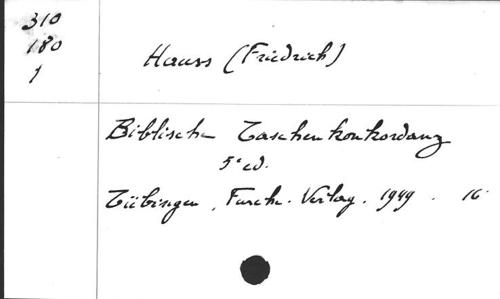 310
180
1
Hauss (Friedrich)
Biblische Taschenkonkordanz
5e ed.
Tübingen, Furche-Verlag. 1949. 16°